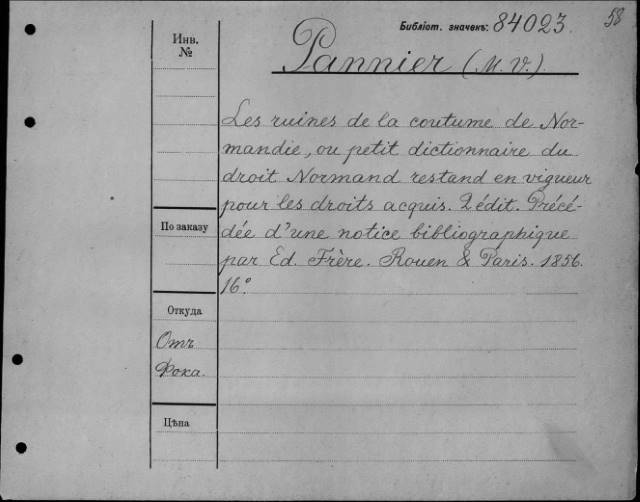 58
Библіот. значекъ: 84023
Инв.
№
Pannier (M. V.)
Les ruines de la coutume de Nor-
mandie, ou petit dictionnaire du
droit Normand restand en vigueur
pour les droits acquis. 2 édit. Précé-
dée d'une notice bibliographique
par Ed. Frère. Rouen & Paris. 1856.
16°
По заказу
Откуда
Отъ
Фока.
Цѣна